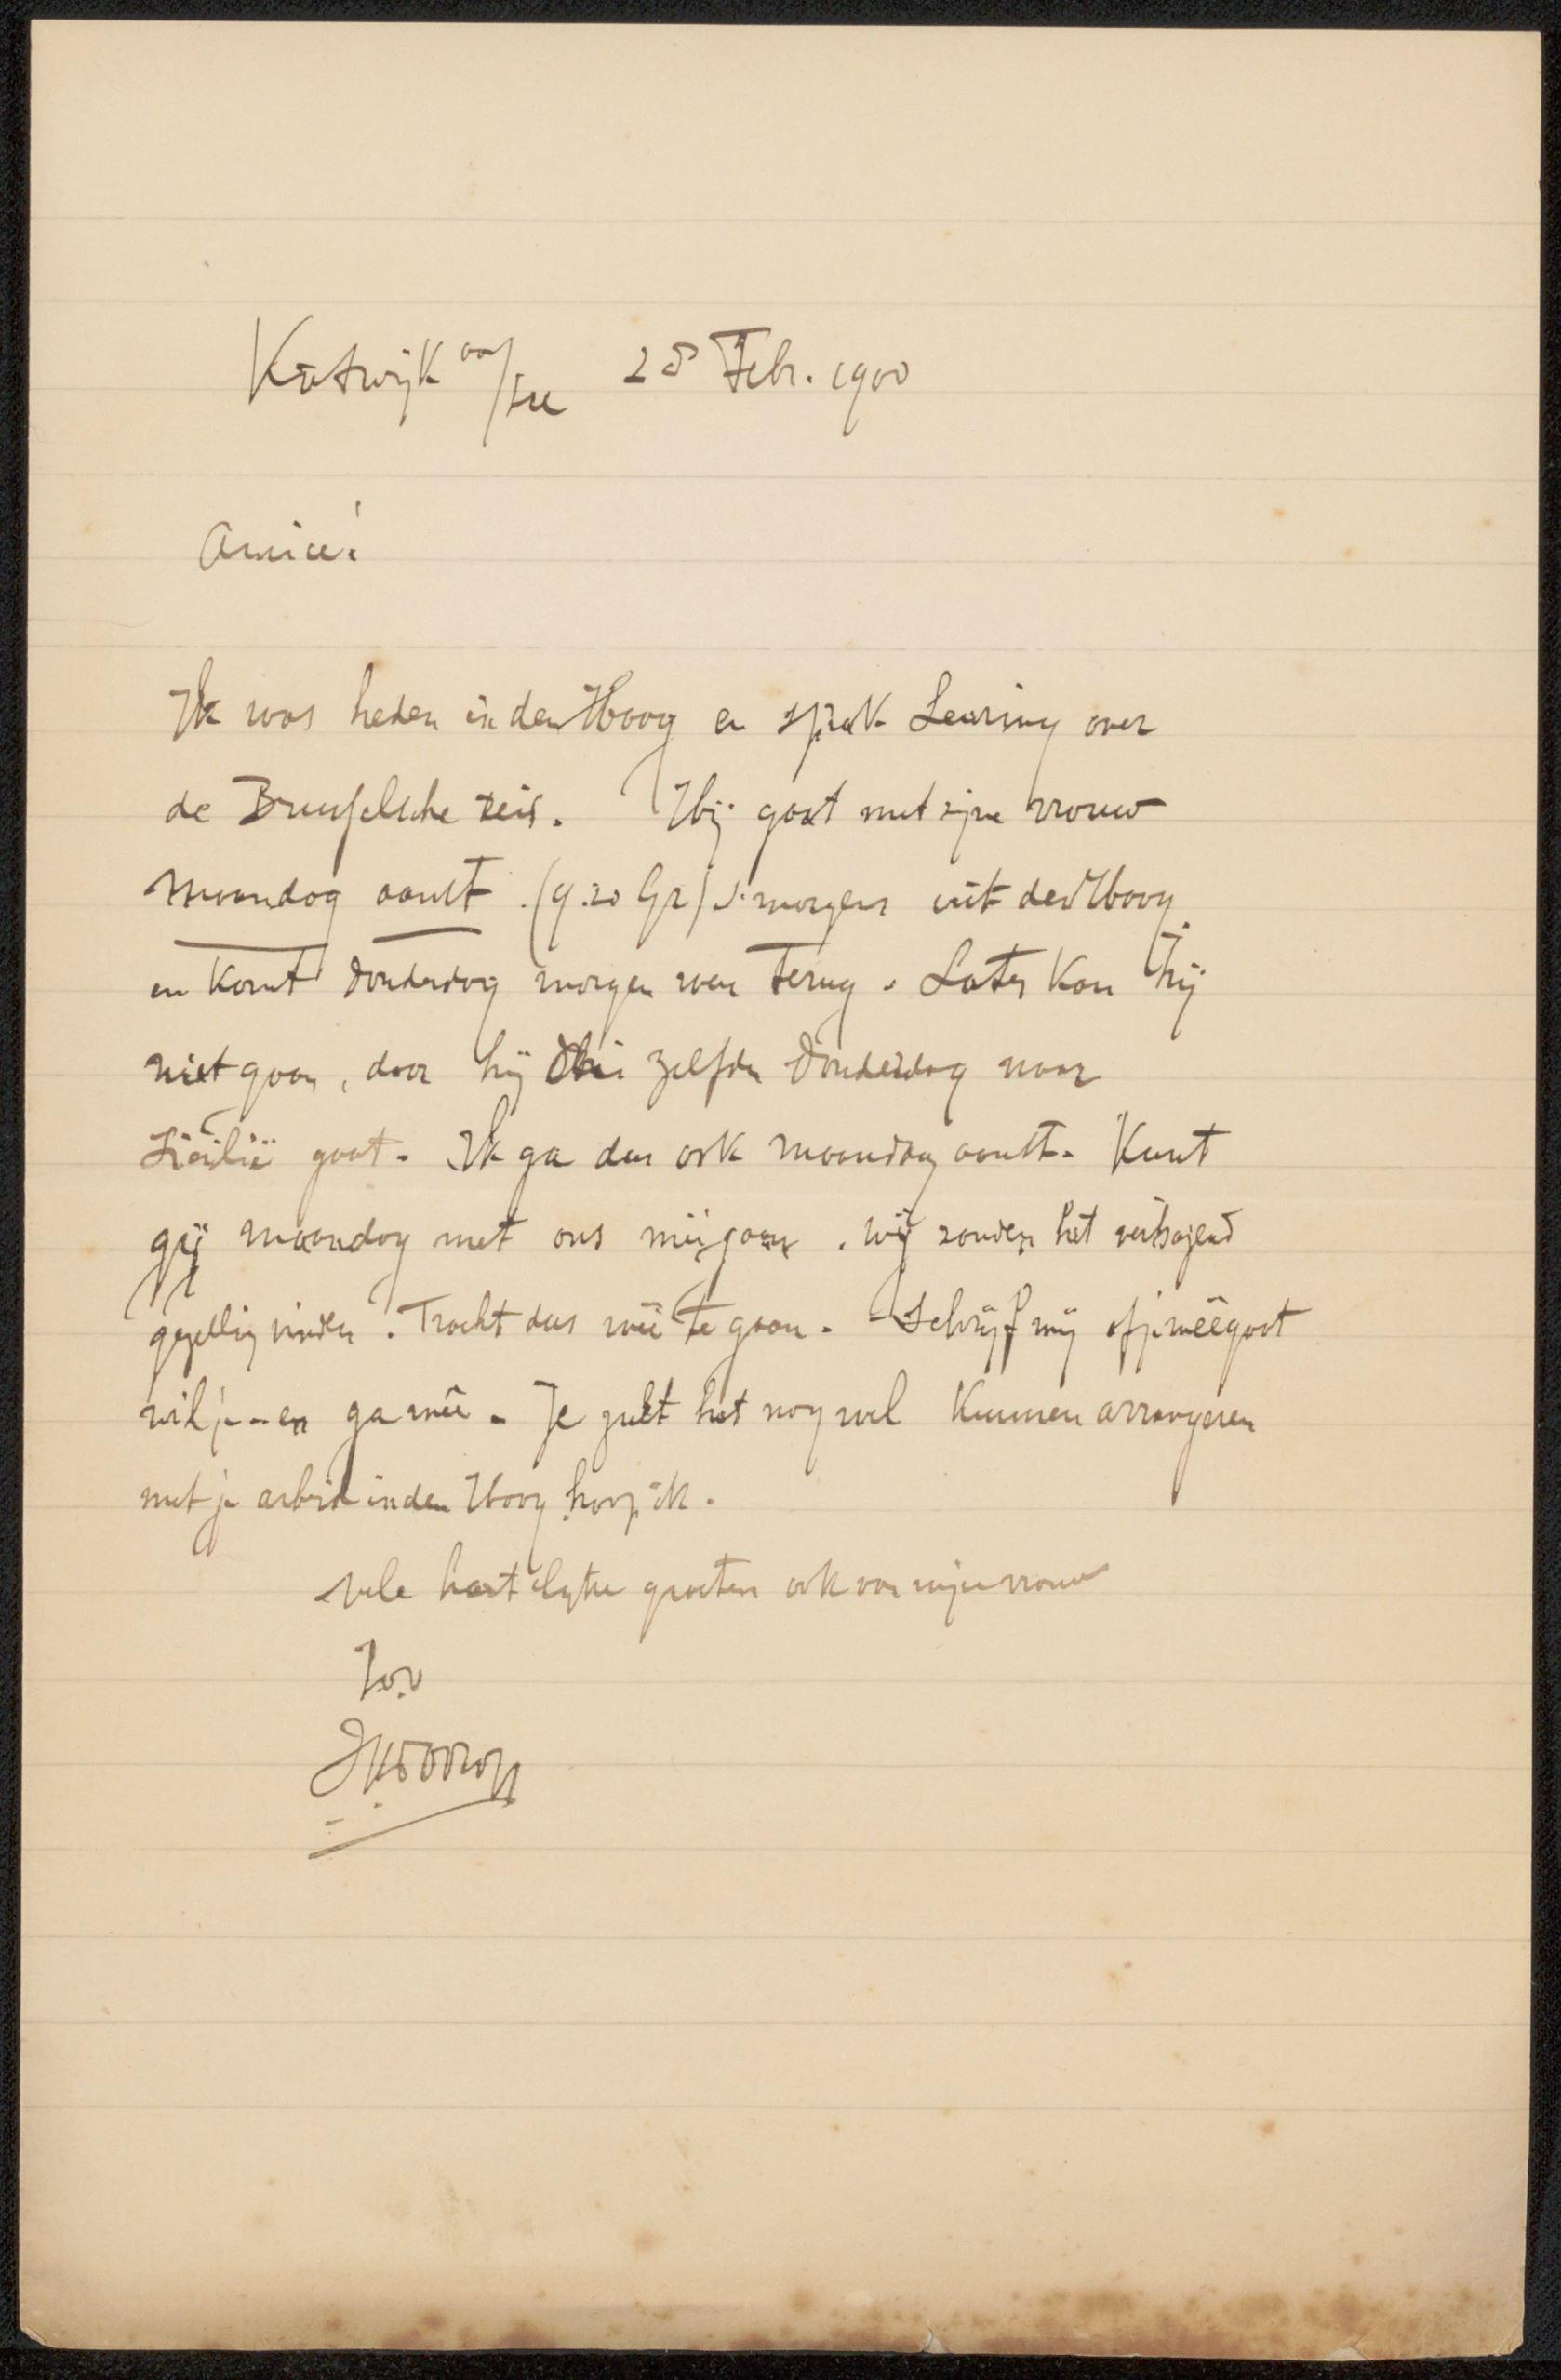 Katwijk aan/Zee 28 Febr. 1900
Amice!
Ik was heden in den Haag en sprak Leuring over
de Brusselsche reis. Hij gaat met zijne vrouw
maandag aanst. (9.20 Gr) 's morgens uit den Haag
en komt donderdag morgen weer terug. Later kan hij
niet gaan, daar hij zelfden donderdag naar
Sicilië gaat. Ik ga dus ook maandag aanst. Kunt
gij maandag met ons meegaan. wij zouden het
gezellig vinden. Tracht dus meê te gaan. - Schrijf mij of je meêgaat
wil je - en ga meê. Je zult het nog wel kunnen arrangeren
met je arbeid in den Haag hoop ik.
vele hartelijke groeten ook van mijne vrouw
t.a.v
JThToorop